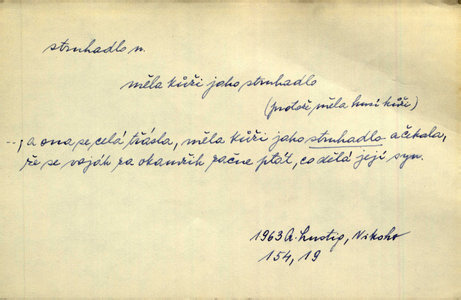 struhadlo n.
měla kůži jako struhadlo
(protož měla husí kůži)
--, a ona se celá třásla, měla kůži jako struhadlo a čekala,
že se voják za okamžik začne ptát, co dělá její syn.
1963 A. Lustig, Nikoho
154, 19